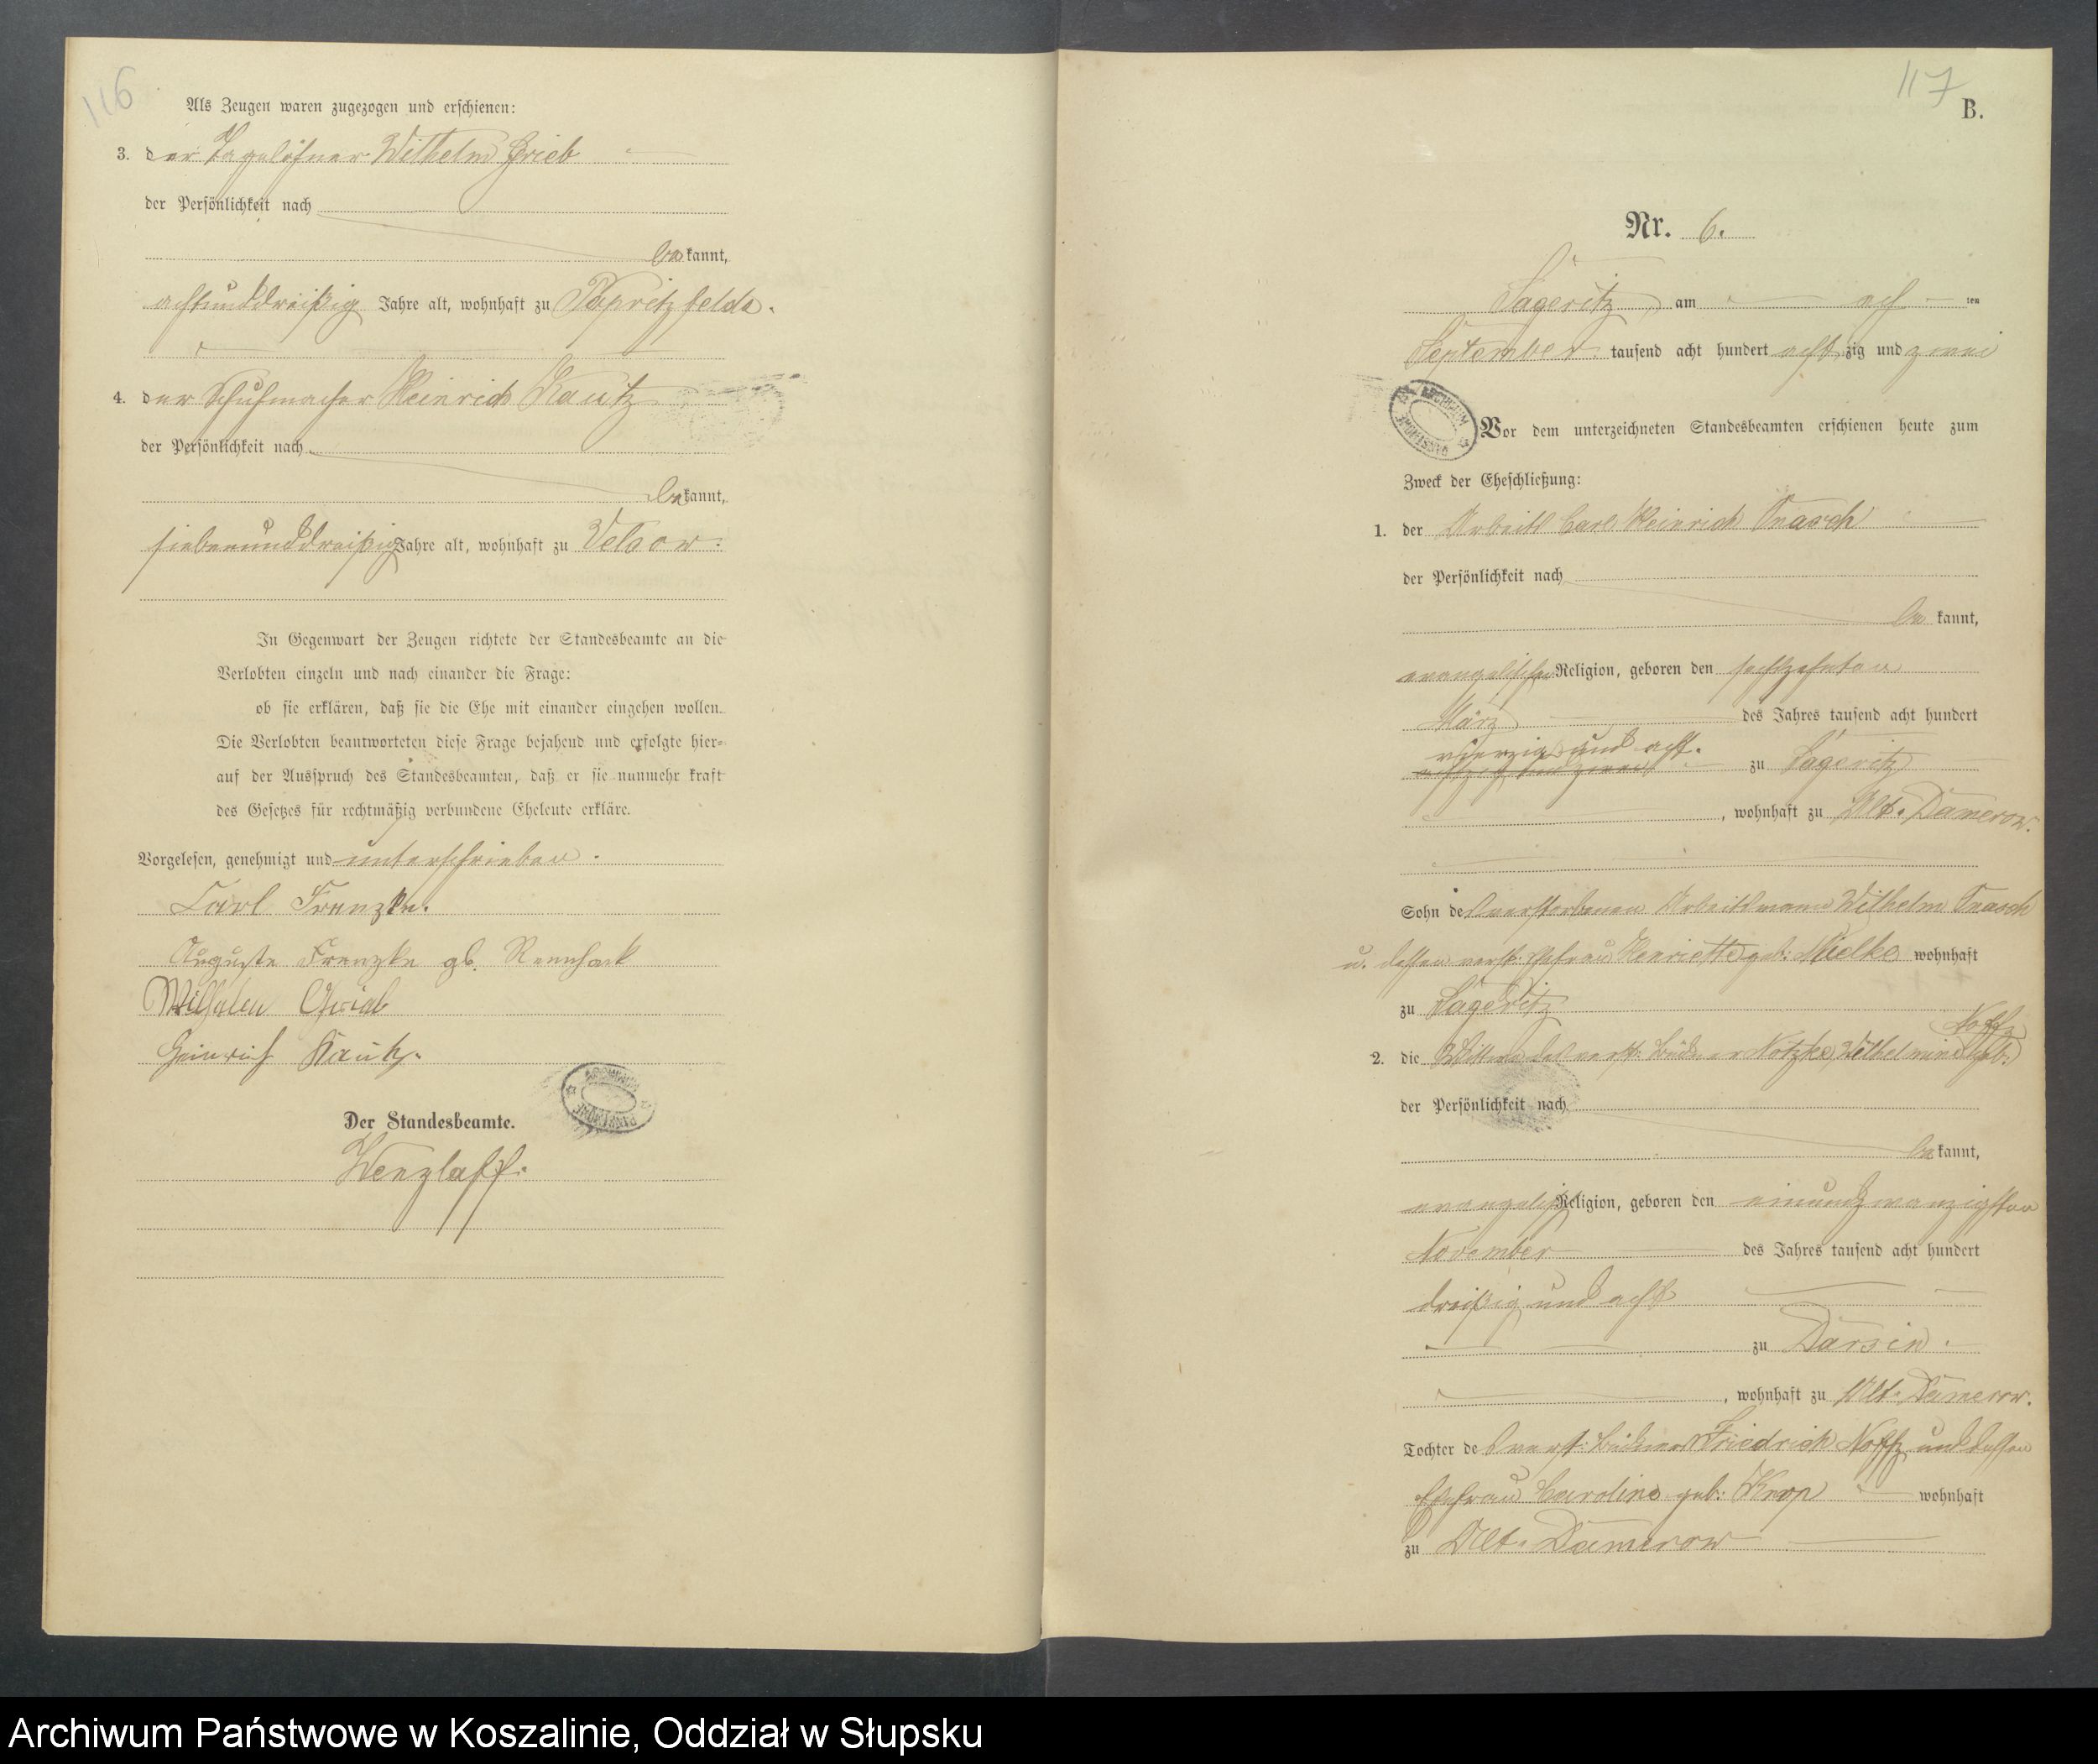 116
Als Zeugen waren zugezogen und erschienen:
3. der Tagelöhner Wilhelm Grieb
der Persönlichkeit nach
bekannt,
achtunddreißig Jahre alt, wohnhaft zu Papritzfelde.
4. der Schuhmacher Heinrich Kautz
der Persönlichkeit nach
bekannt,
siebenunddreißig Jahre alt, wohnhaft zu Velsow.
In Gegenwart der Zeugen richtete der Standesbeamte an die
Verlobten einzeln und nach einander die Frage:
ob sie erklären, daß sie die Ehe mit einander eingehen wollen.
Die Verlobten beantworteten diese Frage bejahend und erfolgte hier-
auf der Ausspruch des Standesbeamten, daß er sie nunmehr kraft
des Gesetzes für rechtmäßig verbundene Eheleute erkläre.
Vorgelesen, genehmigt und unterschrieben.
Carl Franzke.
Auguste Franzke gb. Rennhack
Wilhelm Grieb
Heinrich Kautz.
Der Standesbeamte.
Wenzlaff.
117
B.
Nr. 6.
Sageritz, am acht ten
September tausend acht hundert achtzig und zwei
Vor dem unterzeichneten Standesbeamten erschienen heute zum
Zweck der Eheschließung:
1. der Carl Heinrich
der Persönlichkeit nach
bekannt,
evangelischer Religion, geboren den sechszehnten
März des Jahres tausend acht hundert
vierzig und acht.
achtzig und zwei zu Sageritz
, wohnhaft zu Alt-Damerow.
Sohn des verstorbenen Arbeitsmann Wilhelm
u. dessen verst. Ehefrau Henriette geb. Mielke wohnhaft
zu Sageritz
Noffz
2. die Wittwe des verst. Büdner Notzke, Wilhelmine geb.
der Persönlichkeit nach
bekannt,
evangelisch Religion, geboren den einundzwanzigsten
November des Jahres tausend acht hundert
dreißig und acht
zu Darsin.
, wohnhaft zu Alt-Damerow.
Tochter des verst. Büdners Friedrich Noffz und dessen
Ehefrau Caroline geb. wohnhaft
zu Alt-Damerow
Archiwum Państwowe w Koszalinie, Oddział w Słupsku